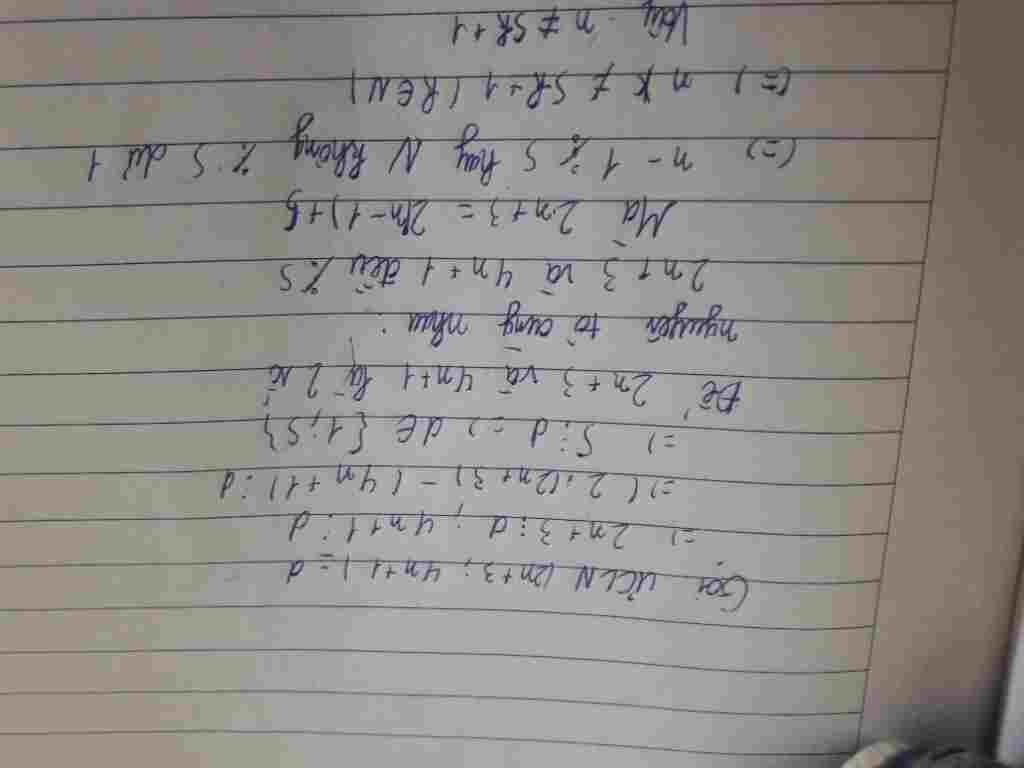 Gọi ƯCLN (2n+3; 4n+1) = d
=) 2n+3 ⋮ d ; 4n+1 ⋮ d
=) ( 2.(2n+3) - (4n+1) ⋮ d
=) 5 ⋮ d =) d ∈ {1; 5}
Để 2n+3 và 4n+1 là 2 số
nguyên tố cùng nhau :
2n+3 và 4n+1 đều ⋮̸ 5
Mà 2n+3 = 2(n-1)+5
(=) n-1 ⋮̸ 5 hay N không ⋮ 5 dư 1
(=) n ≠ 5k+1 (k∈N)
Vậy n ≠ 5k+1